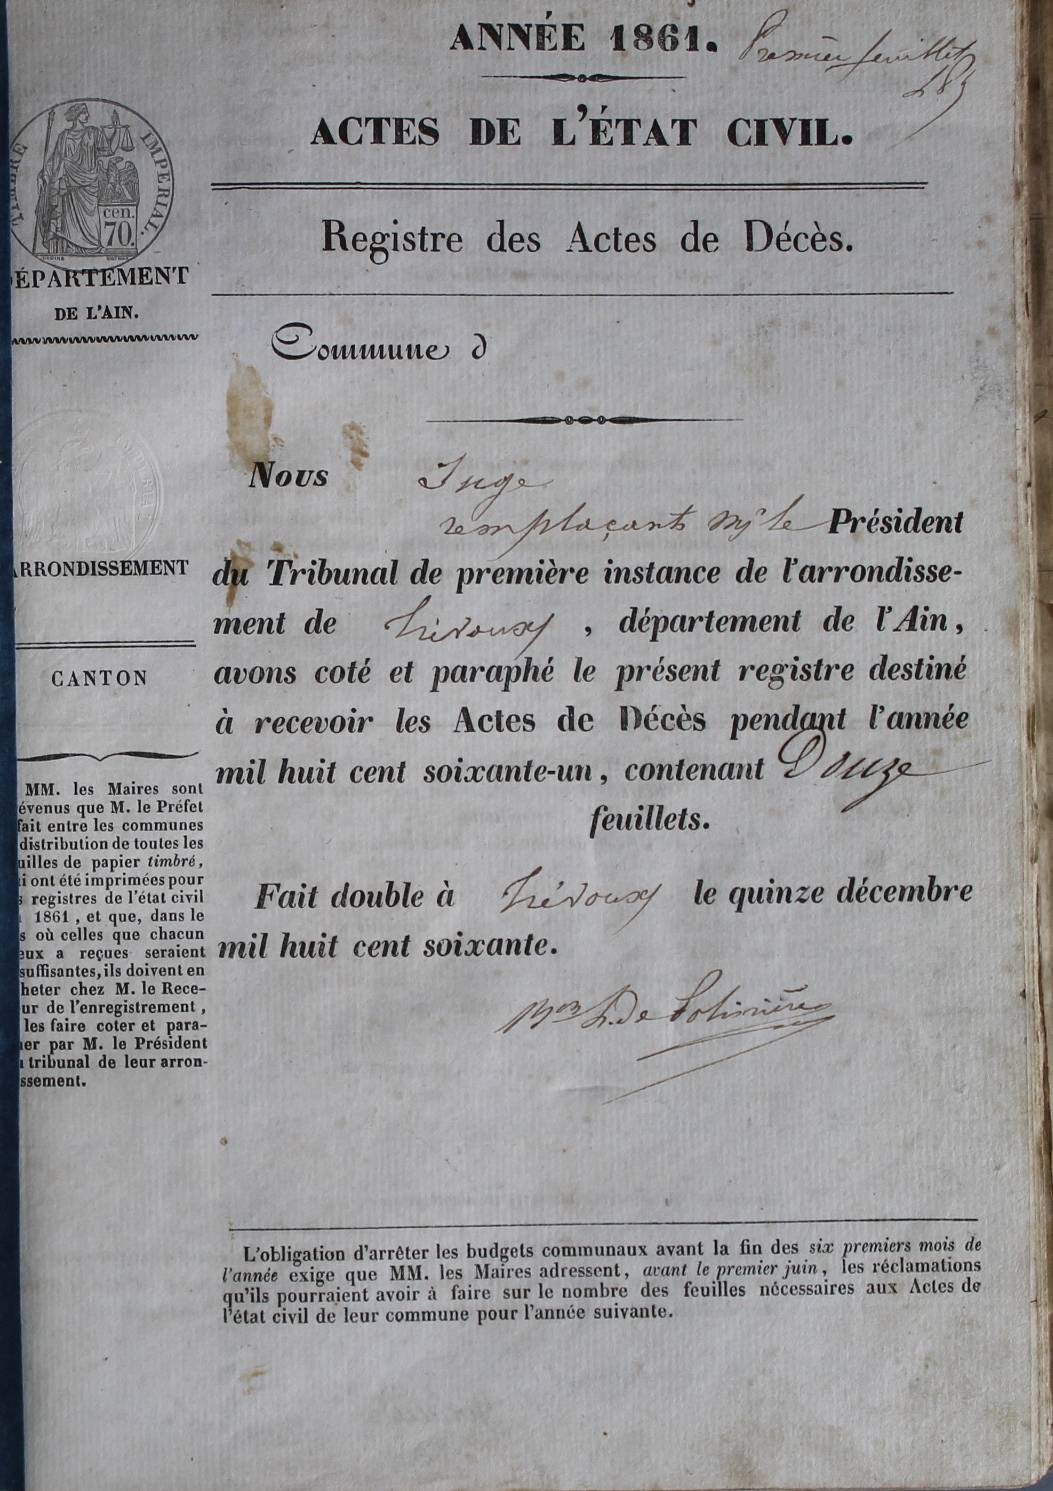 ANNÉE 1861.
Premier feuillet
ACTES DE L'ÉTAT CIVIL.
TIMBRE IMPERIAL.
cen.
70.
Registre des Actes de Décès.
ÉPARTEMENT
DE L'AIN.
Commune d
Nous Juge
remplaçant mr le Président
du Tribunal de première instance de l'arrondisse-
ment de Trévoux, département de l'Ain,
avons coté et paraphé le présent registre destiné
à recevoir les Actes de Décès pendant l'année
mil huit cent soixante-un, contenant Douze
feuillets.
Fait double à Trévoux le quinze décembre
mil huit cent soixante.
RRONDISSEMENT
CANTON
MM. les Maires sont
évenus que M. le Préfet
fait entre les communes
distribution de toutes les
uilles de papier timbré,
i ont été imprimées pour
s registres de l'état civil
1861, et que, dans le
s où celles que chacun
eux a reçues seraient
suffisantes, ils doivent en
heter chez M. le Rece-
ur de l'enregistrement,
les faire coter et para-
er par M. le Président
tribunal de leur arron-
ssement.
L'obligation d'arrêter les budgets communaux avant la fin des six premiers mois de
l'année exige que MM. les Maires adressent, avant le premier juin, les réclamations
qu'ils pourraient avoir à faire sur le nombre des feuilles nécessaires aux Actes de
l'état civil de leur commune pour l'année suivante.